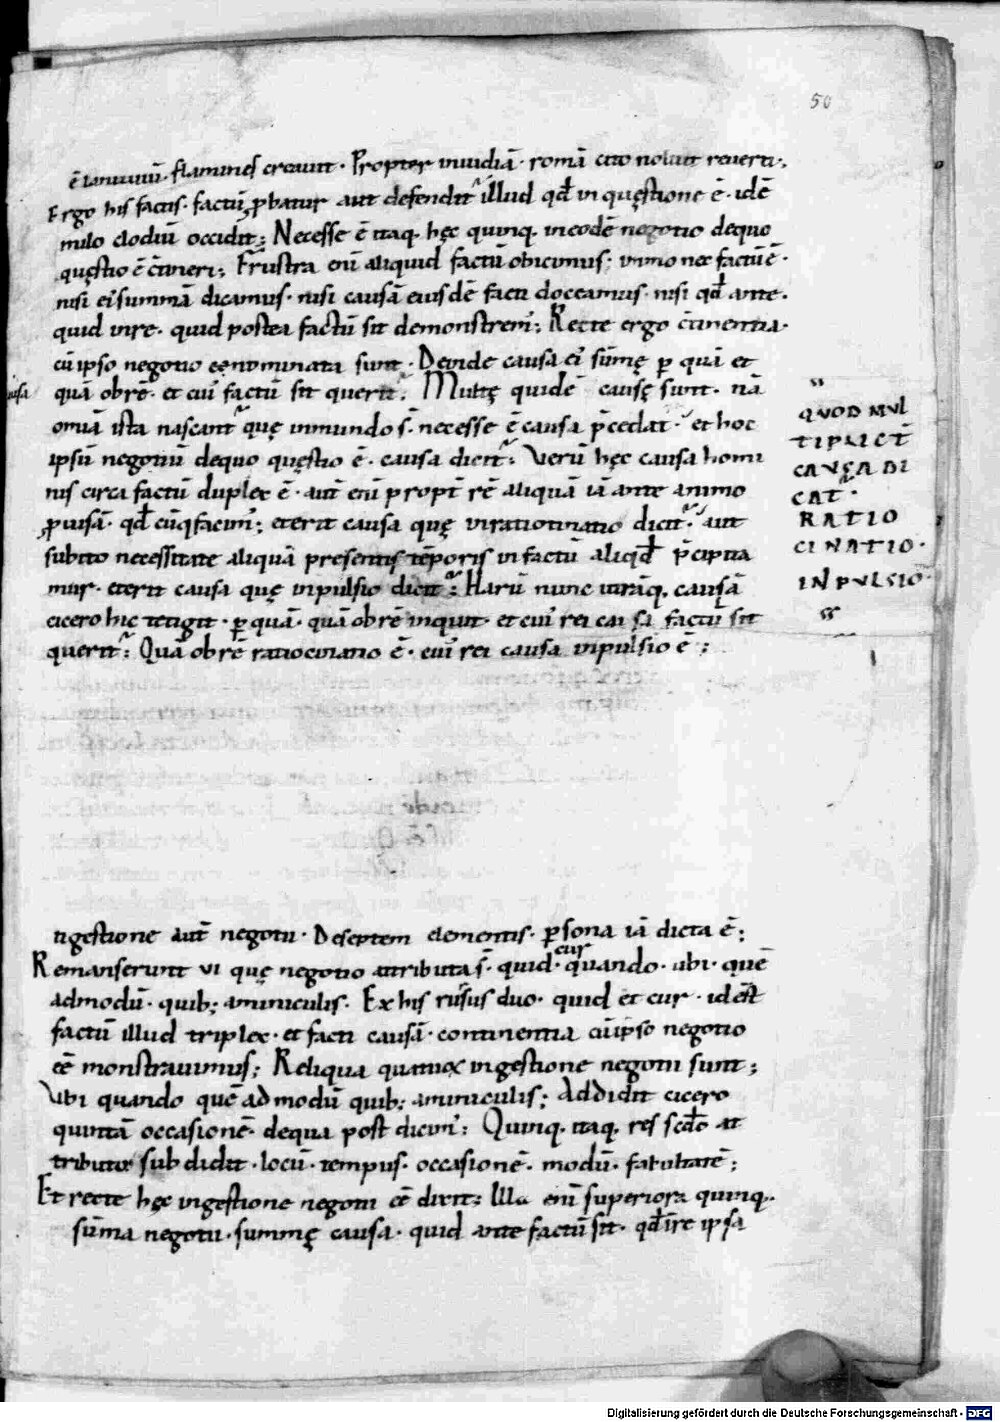 50
flamines creauit · Propter inuidiā · romā cito noluit reuerti ·
Ergo his factis · factū ꝓbatur aut defendit᷑ illud qđ in quęstione ē · idē
milo clodiū occidit ; Necesse ē itaq · hęc quinq · in eodē negotio de quo
quęstio ē c̄tineri ; Frustra eni aliquid factū obicimus · immo nec factū ē ·
nisi ei summā dicamus · nisi causā eiusdē facti doceamus · nisi qđ ante ·
quid in re · quid postea factū sit demonstrem᷒ ; Recte ergo c̄tinentia ·
cū ipso negotio ēē nominata sunt · Deinde causa ei᷒ sūmę ꝑ quā et
quā ob rē · et cui᷒ factū sit querit᷑ ; Multę quidē causę sunt · nā
causa
omia ista nascant᷑ quę in mundo s̄ · necesse ē causa p̄cedat · et hoc
ipsū negotiū de quo quęstio ē · causa dicit᷑ ; Verū hęc causa homi
nis circa factū duplex ē · aut eni propt̄ rē aliquā iā ante animo
ꝓuisā · qđ cūq facim᷒ ; et erit causa quę ratiotinatio dicit᷑ · aut
subito necessitate aliquā presentis tēporis in factū aliqđ p̄cipita
mur · et erit causa quę inpulsio dicit᷑ ; Harū nunc utrāq · causā
cicero hic tetigit · ꝑ quā · quā ob rē inquit · et cui᷒ rei causa factū sit
querit᷑ ; Quā ob rē ratiocinatio ē · cui᷒ rei causa inpulsio ē ;
QUOD MUL
TIPLICT̄
CAUSA DI
CAT᷑ ·
RATIO
CINATIO ·
INPULSIO ·
In gestione aut̄ negotii · De septem elementis · ꝑsona iā dicta ē ;
Remanserunt VI quę negotio attributa s̄ · quid · cur quando · ubi · quē
admodū · quib ; aminiculis · Ex his rursus duo · quid et cur · id est
factū illud triplex · et facti causā · continentia cū ipso negotio
ēē monstrauimus ; Reliqua quattuor in gestione negotii sunt ;
Vbi quando quē ad modū quib ; aminiculis ; Addidit cicero
quintā occasionē · de qua post dicim᷒ ; Quinq · itaq · res scđo at
tributo subdidit · locū · tempus · occasionē · modū · facultatē ;
Et recte hęc in gestione negotii ēē dixit ; Illa eni superiora quinq ·
sūma negotii · summę causa · quid ante factū sit · qđ in re ipsa